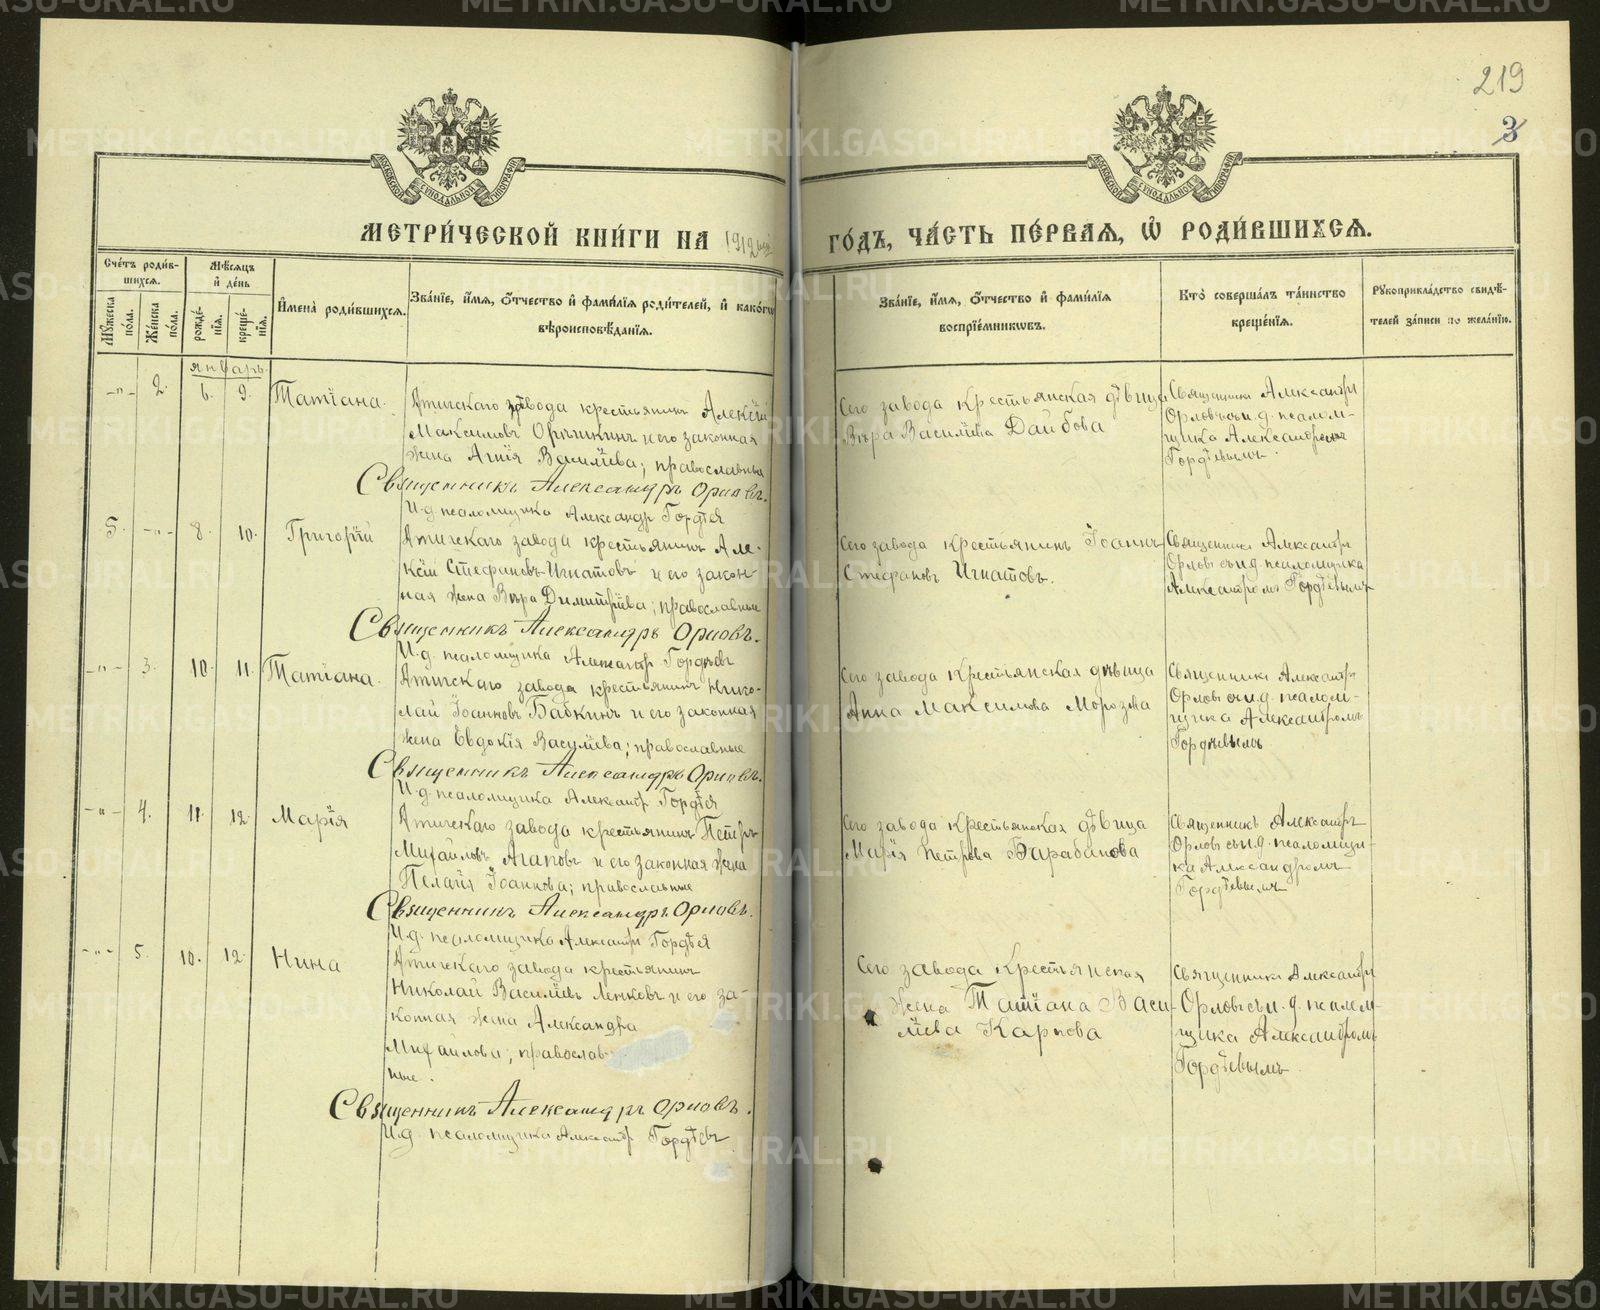 219
3
МОСКОВСКОЙ СѴНОДАЛЬНОЙ ТИПОГРАФІИ
МОСКОВСКОЙ СѴНОДАЛЬНОЙ ТИПОГРАФІИ
МЕТРИ́ЧЕСКОЙ КНИ́ГИ НА 1912
ГО́ДЪ, ЧА́СТЬ ПЕ́РВАЯ, Ѿ РОДИ́ВШИХСЯ.
Сче́тъ роди́в-
шихся.
Мѣ́сяцъ
и де́нь
Мꙋ́жеска
по́ла.
Же́нска
по́ла.
рожде́-
нїя.
креще́-
нїя.
И҆мена̀ роди́вшихся.
Зва́нїе, и́мя, о́тчество и фами́лїя роди́телей, и како́гѡ
вѣроисповѣ́данїя.
Зва́нїе, и́мя, о́тчество и фами́лїя
воспрїе́мникѡвъ.
Кто̀ соверша́лъ та́инство
креще́нїя.
Рꙋкоприкла́дство свидѣ́-
телей за́писи по жела́нїю.
январь
-"- 2. 6. 9. Татіана.
Атигскаго завода крестьянинъ Алексій
Максимовъ и его законная
жена Агнія Василіева; православные
Священникъ Александръ Орловъ.
И.д. псаломщика Александр Гордѣев
Сего завода крестьянская дѣвица
Вѣра Василіева Дайбова
Священникъ Александръ
Орловъ съ и.д. псалом-
щика Александромъ
Гордѣевымъ.
5. -"- 8. 10. Григорій
Атигскаго завода крестьянинъ Але-
ксій Стефановъ Игнатовъ и его закон-
ная жена Вѣра Димитріева; православные
Священникъ Александръ Орловъ.
И.д. псаломщика Александр Гордѣев
Сего завода крестьянинъ Іоаннъ
Стефановъ Игнатовъ.
Священникъ Александръ
Орловъ съ и.д. псаломщика
Александромъ Гордѣевымъ
-"- 3. 10. 11. Татіана.
Атигскаго завода крестьянинъ Нико-
лай Іоанновъ Бабкинъ и его законная
жена Евдокія Василіева; православные
Священникъ Александръ Орловъ.
И.д. псаломщика Александр Гордѣев
Сего завода крестьянская дѣвица
Анна Максимова Морозова
Священникъ Александръ
Орловъ съ и.д. псалом-
щика Александромъ
Гордѣевымъ
-"- 4. 11. 12. Марія
Атигскаго завода крестьянинъ Петръ
Михайловъ Агаповъ и его законная жена
Пелагія Іоаннова; православные
Священникъ Александръ Орловъ.
И.д. псаломщика Александръ Гордѣев
Сего завода крестьянская дѣвица
Марія Петрова Барабанова
Священникъ Александръ
Орловъ съ и.д. псаломщи-
ка Александромъ
Гордѣевымъ
-"- 5. 10. 12. Нина
Атигскаго завода крестьянинъ
Николай Василіевъ Ленковъ и его за-
конная жена Александра
Михайлова; православ-
ные.
Священникъ Александръ Орловъ.
И.д. псаломщика Александр Гордѣевъ
Сего завода крестьянская
жена Татіана Васи-
ліева Карпова
Священникъ Александръ
Орловъ съ и.д. псалом-
щика Александромъ
Гордѣевымъ.
METRIKI.GASO-URAL.RU